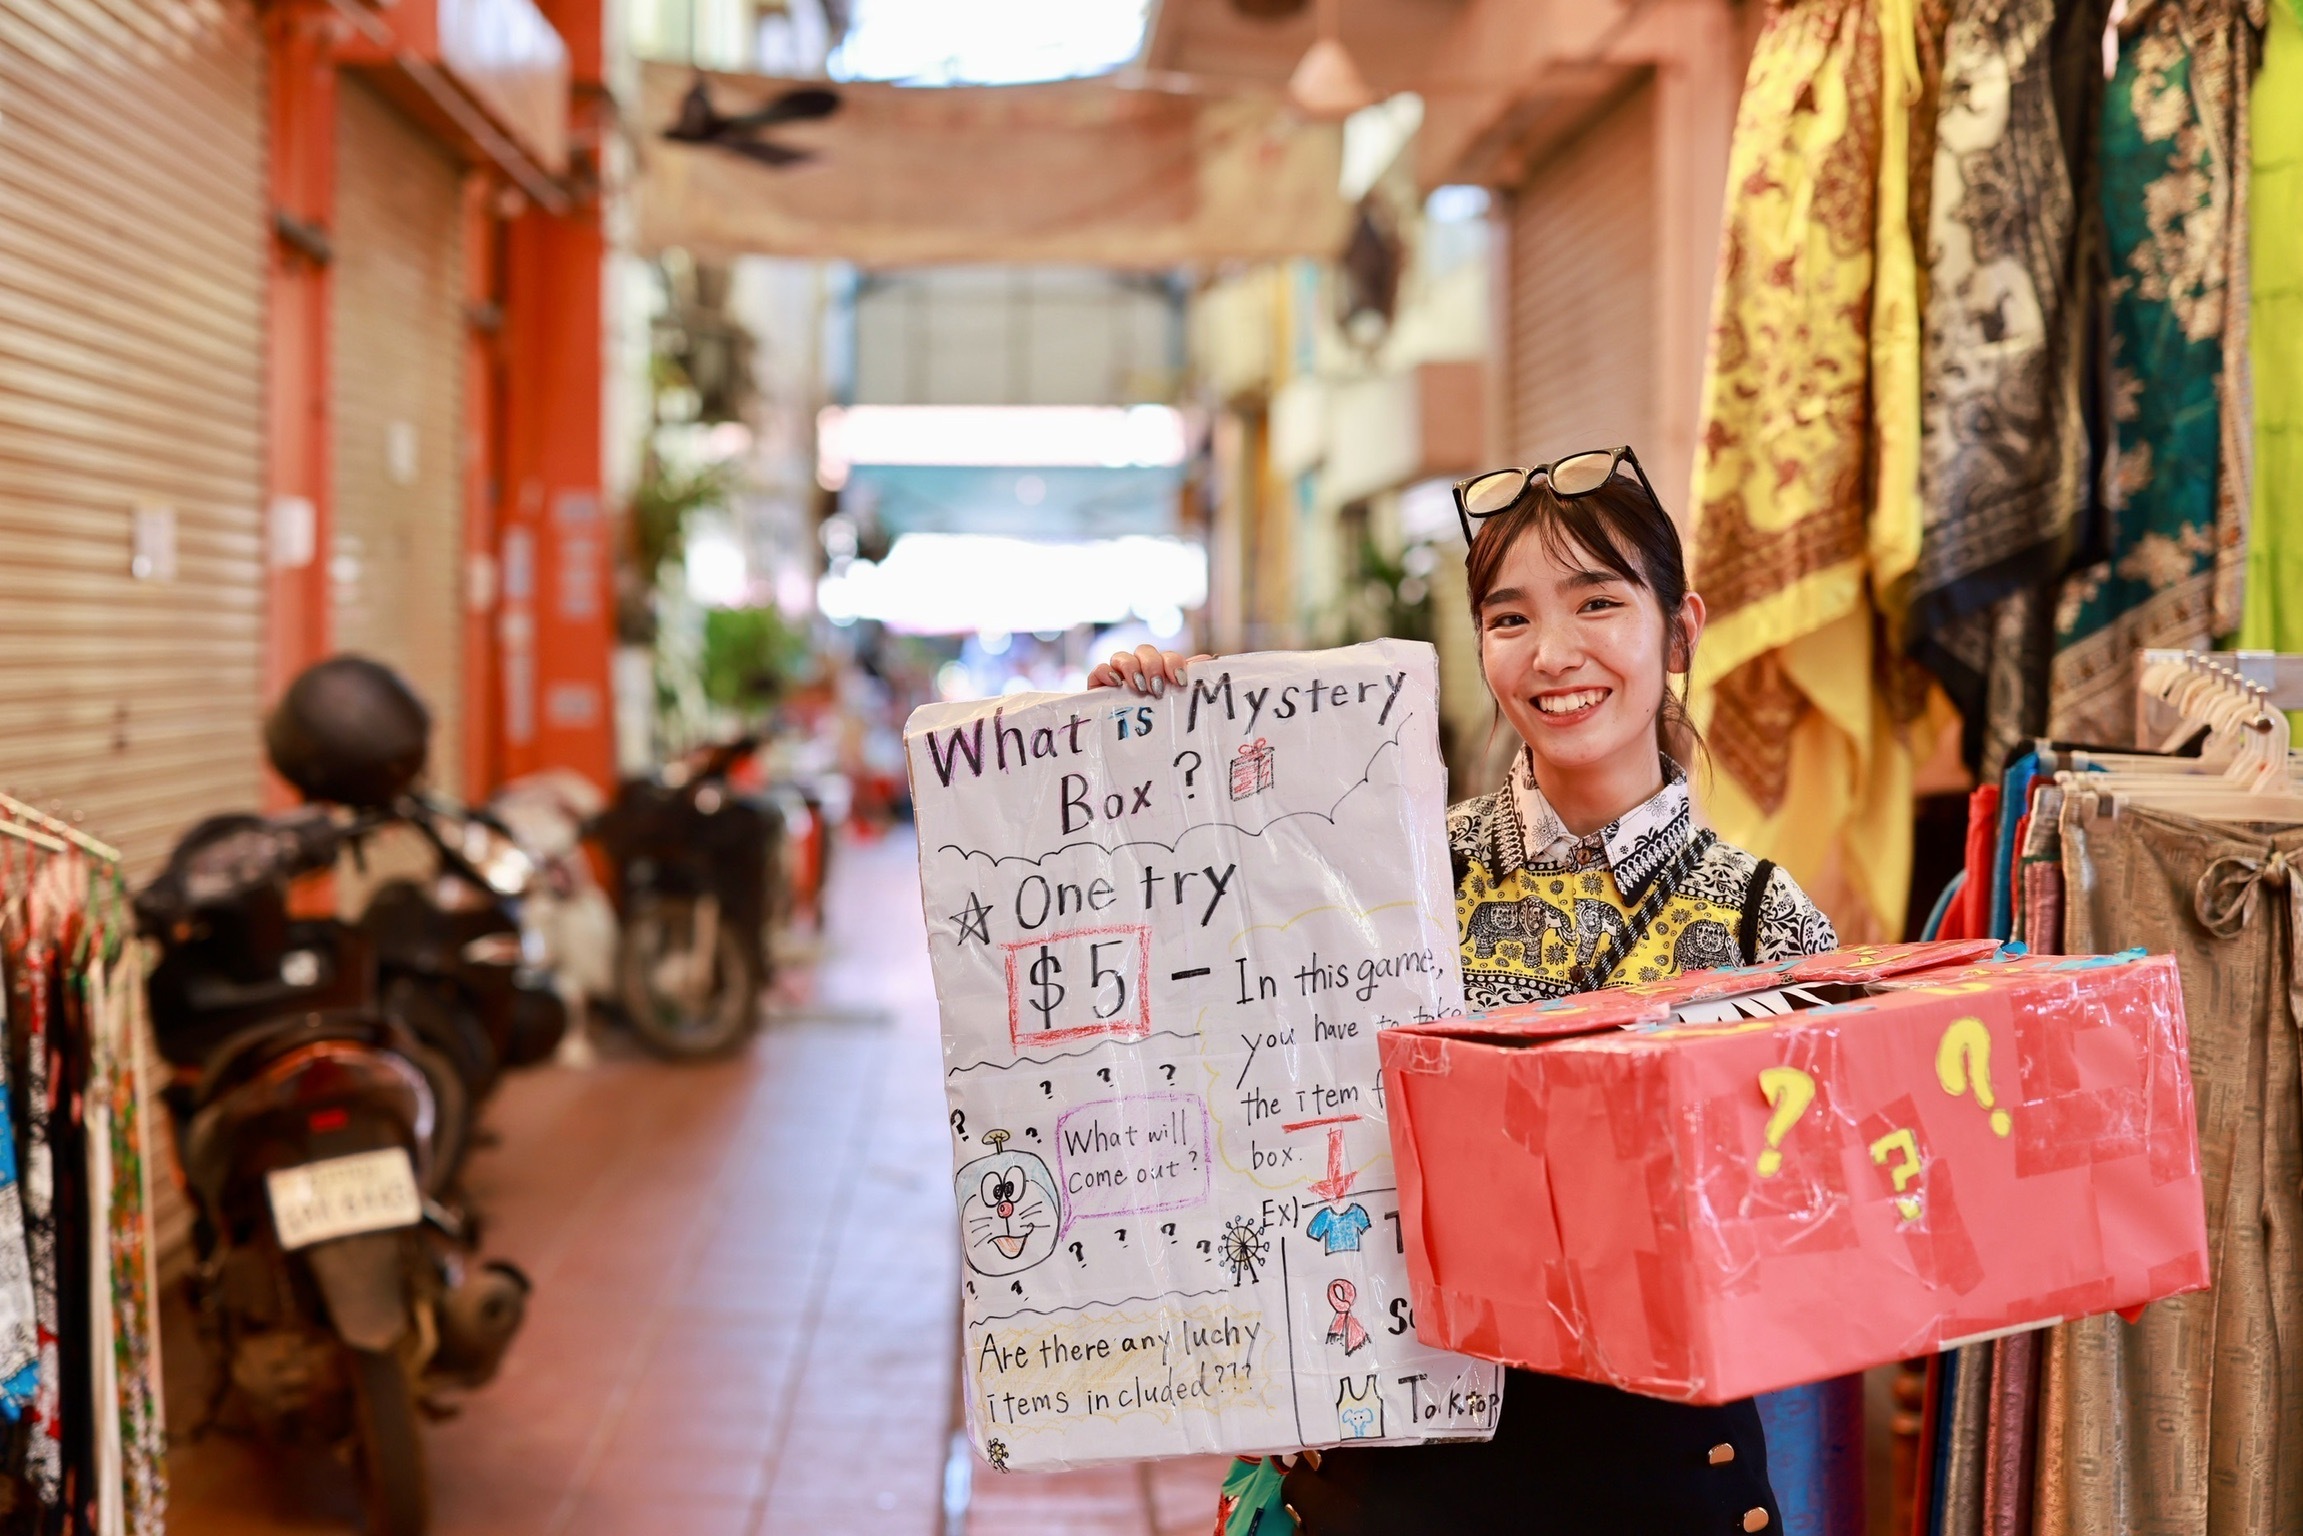 What is Mystery
Box ?
☆ One try
$5 -
In this game,
you have to take
the item
box.
? ? ?
? ?
What will
come out?
? ? ? ?
? ?
Ex)
T
Are there any luchy
items included???
Tanktop
? ? ?